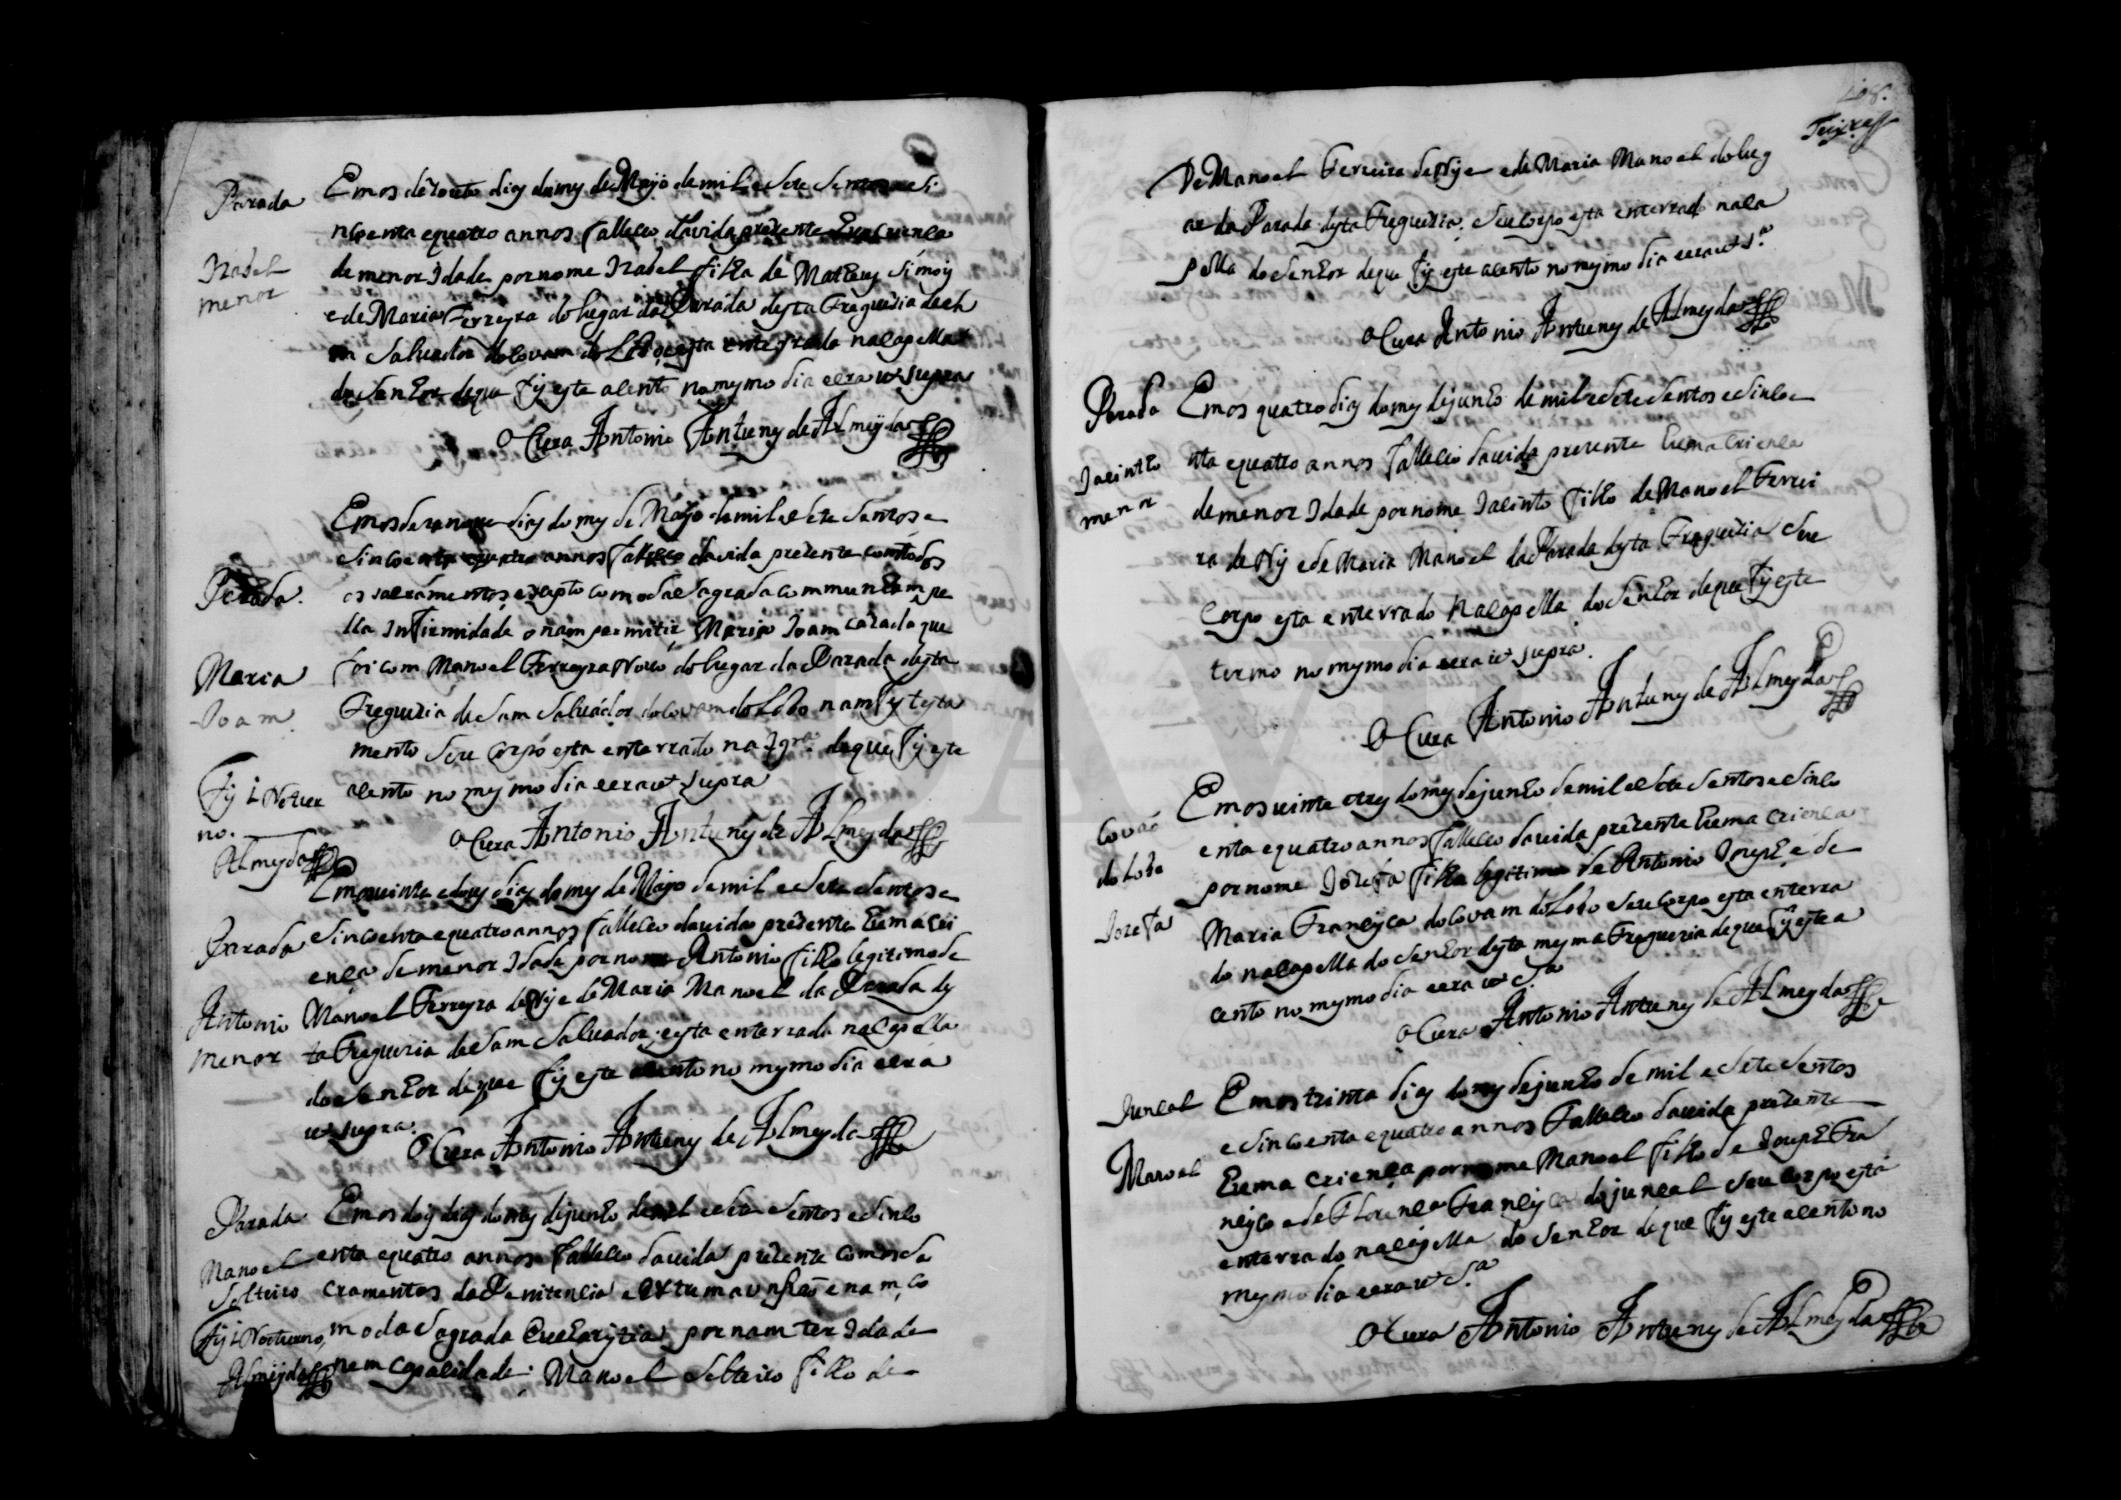 Parada
Izabel
menor
Emos dezouto dias do mes de Mayo de mil e sete sentos e si
ncoenta e quatro annos falleseo da vida prezente huã crienca
de menor Idade por nome Izabel filha de Matheus Simois
e de Maria Ferreyra do lugar da Parada desta Freguezia de sa
m Salvador do Covam do Lobo e esta enterrada na Capella
do Senhor de que fis este acento no mesmo dia e era ut supra
O Cura Antonio Antunes de Almeyda
Parada.
Maria
Joam
Fis 1 Notur
no.
Almeyda
Emos dezanove dias do mes de Mayo de mil e sete sentos e
sincoenta e quatro annos falleseo da vida prezente com todos
os sacramentos, excepto com o da Sagrada Communham pe
lla Infirmidade o nam permitir Maria Joam cazada que
foi com Manoel Ferreyra Novo do lugar da Parada desta
Freguezia de Sam Salvador do Covam do Lobo nam fes testa
mento seu Corpo esta enterrado na Igrª. de que fis este
acento no mesmo dia e era ut supra
O Cura Antonio Antunes de Almeyda
Parada
Antonio
menor
Emos vinte e dous dias do mes de Mayo de mil e sete sentos e
sincoenta e quatro annos falleseo da vida prezente huma cri
enca de menor Idade por nome Antonio filho legitimo de
Manoel Ferreyra de Nis e de Maria Manoel da Parada des
ta Freguezia de Sam Salvador, e esta enterrado na Capella
do Senhor de que fis este acento no mesmo dia e era
ut supra.
O Cura Antonio Antunes de Almeyda
Parada
Manoel
Solteiro
Fis 1 Noturno,
Almeyda
Emos dois dias do mes de junho de mil e sete sentos e sinco
enta e quatro annos falleseo da vida prezente com os sa
cramentos da Penitencia e Extrema unsaõ e nam, co
m o da Sagrada Eucharistia por nam ter Idade
nem capacidade. Manoel Solteiro filho de
De Manoel Ferreira de Nis e de Maria Manoel do lug
ar da Parada desta Freguezia, seu Corpo esta enterrado na Ca
pella do Senhor de que fis este acento no mesmo dia e era ut sª.
O Cura Antonio Antunes de Almeyda
Parada
Jacintho
menor
Emos quatro dias do mes de junho de mil e sete sentos e sincoe
nta e quatro annos falleseo da vida prezente huma crienca
de menor Idade por nome Jacinto filho de Manoel Ferrei
ra de Nis e de Maria Manoel da Parada desta Freguezia seu
Corpo esta enterrado na Capella do Senhor de que fis este
termo no mesmo dia e era ut supra.
O Cura Antonio Antunes de Almeyda
Covaõ
do Lobo
Jozefa
Emos vinte e tres do mes de junho de mil e sete sentos e sinco
enta e quatro annos falleseo da vida prezente huma crienca
por nome Jozefa filha legitima de Antonio Joseph e de
Maria Francisca do Covam do Lobo e seu Corpo esta enterra
do na Capella do Senhor desta mesma Freguezia de que fis este a
cento no mesmo dia e era ut sª.
O Cura Antonio Antunes de Almeyda
Juncal
Manoel
Emos trinta dias do mes de junho de mil e sete sentos
e sincoenta e quatro annos falleseo da vida prezente
huma crienca por nome Manoel filho de Joseph Fra
ncisco e de Florenca Francisca do juncal seu Corpo está
enterrado na Capella do Senhor de que fis este acento no
mesmo dia e era ut sª.
O Cura Antonio Antunes de Almeyda